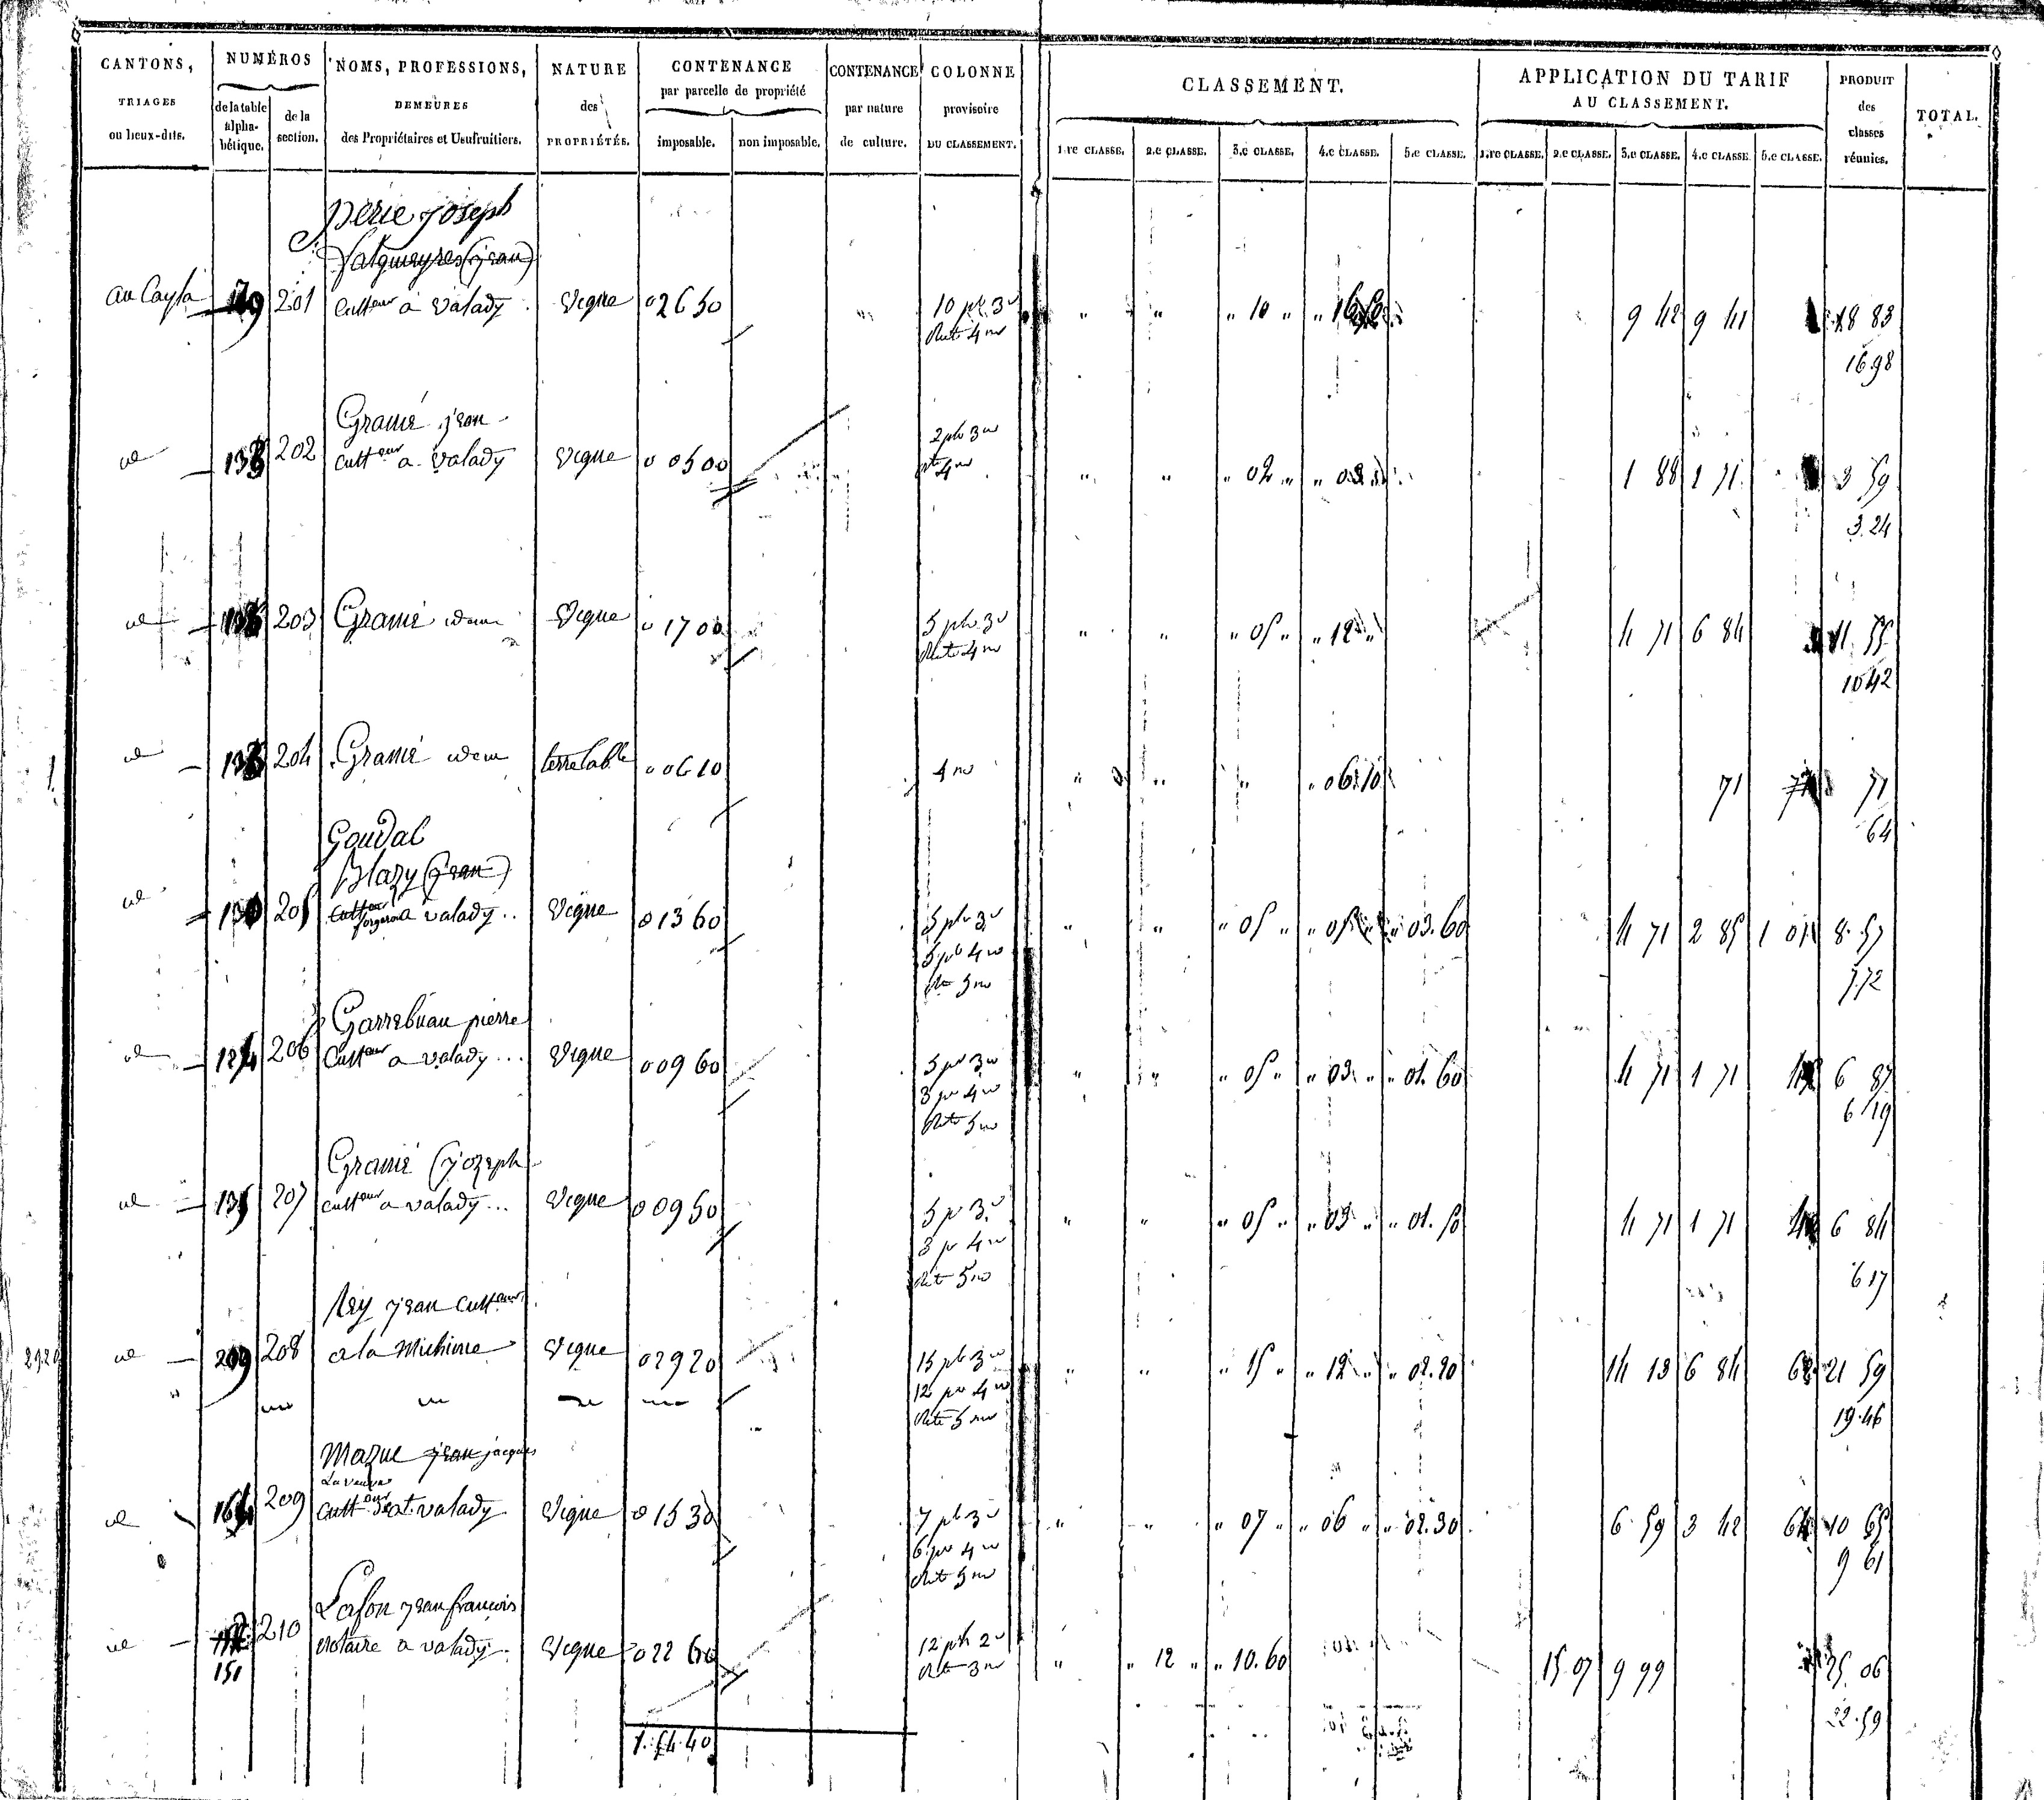 CANTONS, TRIAGES ou lieux-dits.
NUMÉROS de la table alphabétique. de la section.
NOMS, PROFESSIONS, DEMEURES des Propriétaires et Usufruitiers.
NATURE des PROPRIÉTÉS.
CONTENANCE par parcelle de propriété imposable. non imposable.
CONTENANCE par nature de culture.
COLONNE provisoire DU CLASSEMENT.
CLASSEMENT.
1.re CLASSE. 2.e CLASSE. 3.e CLASSE. 4.e CLASSE. 5.e CLASSE.
APPLICATION DU TARIF AU CLASSEMENT.
1.re CLASSE. 2.e CLASSE. 3.e CLASSE. 4.e CLASSE. 5.e CLASSE.
PRODUIT des classes réunies.
TOTAL.
Périé Joseph
falgueyres (jean)
au Cayla 201 Cult.eur a valady Vigne 0 26 50 10 pl. 3e " " " 10 " 9 42 9 41 18 83
Rste 4me 16 98
Gramé jean
id 138 202 Cult.eur a valady Vigne 0 05 00 2 pl. 3me " " " 02 " " 03 " 1 88 1 71 3 59
4me 3.24
id 203 Gramé idem Vigne 0 17 00 5 pl. 3e " " " 05 " " 12 " 4 71 6 84 11 55
Rste 4me 10 42
id 138 204 Gramé idem terre lab.le 0 06 10 4me " " " " 06.10 71 71
64
Goudal
Blazy (jean)
id 205 Cult.eur forgeron a valady Vigne 0 13 60 5 pl. 3e " " " 05 " " 05 " " 03.60 4 71 2 85 1 01 8 57
5 pl. 4me 7.72
Rste 5me
Garrebuau pierre
id 124 206 Cult.eur a valady Vigne 0 09 60 5 pl. 3me " " " 05 " " 03 " " 01.60 4 71 1 71 6 87
3 pl. 4me 6 19
Rste 5me
Gramé (jozeph
id 135 207 cult.eur a valady Vigne 0 09 50 5 pl. 3e " " " 05 " " 03 " " 01.50 4 71 1 71 6 84
3 pl. 4me 6 17
Rste 5me
Rey jean Cult.eur
29.20 id 209 208 a la Michinie Vigne 0 29 20 15 pl. 3me " " " 15 " " 12 " " 02.20 14 13 6 84 62 21 59
12 pl. 4me 19.46
Rste 5me
Mazuc jean jacques
La veuve
id 164 209 Cult.eur a valady Vigne 0 15 30 7 pl. 3e " " " 07 " " 06 " " 02.30 6 59 3 42 64 10 65
6 pl. 4me 9 61
Rste 5me
Lafon jean françois
id 210 Notaire a valady Vigne 0 22 60 12 pl. 2e " " 12 " " 10.60 15 07 9 99 25 06
151 Rste 3me 22.59
1.54.40